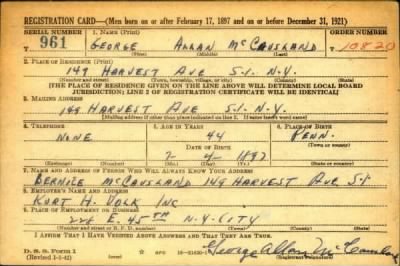 REGISTRATION CARD—(Men born on or after February 17, 1897 and on or before December 31, 1921)
SERIAL NUMBER 1. NAME (Print) ORDER NUMBER
T 961 GEORGE ALLAN McCAUSLAND T 10820
(First) (Middle) (Last)
2. PLACE OF RESIDENCE (Print)
149 HARVEST AVE S.I. N.Y.
(Number and street) (Town, township, village, or city) (County) (State)
[THE PLACE OF RESIDENCE GIVEN ON THE LINE ABOVE WILL DETERMINE LOCAL BOARD
JURISDICTION; LINE 2 OF REGISTRATION CERTIFICATE WILL BE IDENTICAL]
3. MAILING ADDRESS
149 HARVEST AVE S.I. N.Y.
[Mailing address if other than place indicated on line 2. If same insert word same]
4. TELEPHONE 5. AGE IN YEARS 6. PLACE OF BIRTH
NONE 44 PENN.
DATE OF BIRTH
1897
(Exchange) (Number) (Mo.) (Day) (Yr.) (State or country)
7. NAME AND ADDRESS OF PERSON WHO WILL ALWAYS KNOW YOUR ADDRESS
BERNICE McCAUSLAND 149 HARVEST AVE S.I.
8. EMPLOYER'S NAME AND ADDRESS
KURT H. VOLK INC
9. PLACE OF EMPLOYMENT OR BUSINESS
E. 45TH N.Y. CITY
(Number and street or R. F. D. number) (Town) (County) (State)
I AFFIRM THAT I HAVE VERIFIED ABOVE ANSWERS AND THAT THEY ARE TRUE.
D. S. S. Form 1
(Revised 1-1-42) GPO George Allan McCausland
(Registrant's signature)